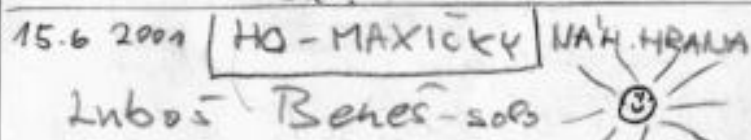 15.6 2001 HO-MAXIČKY NÁH. HRANA
Luboš Beneš-solo